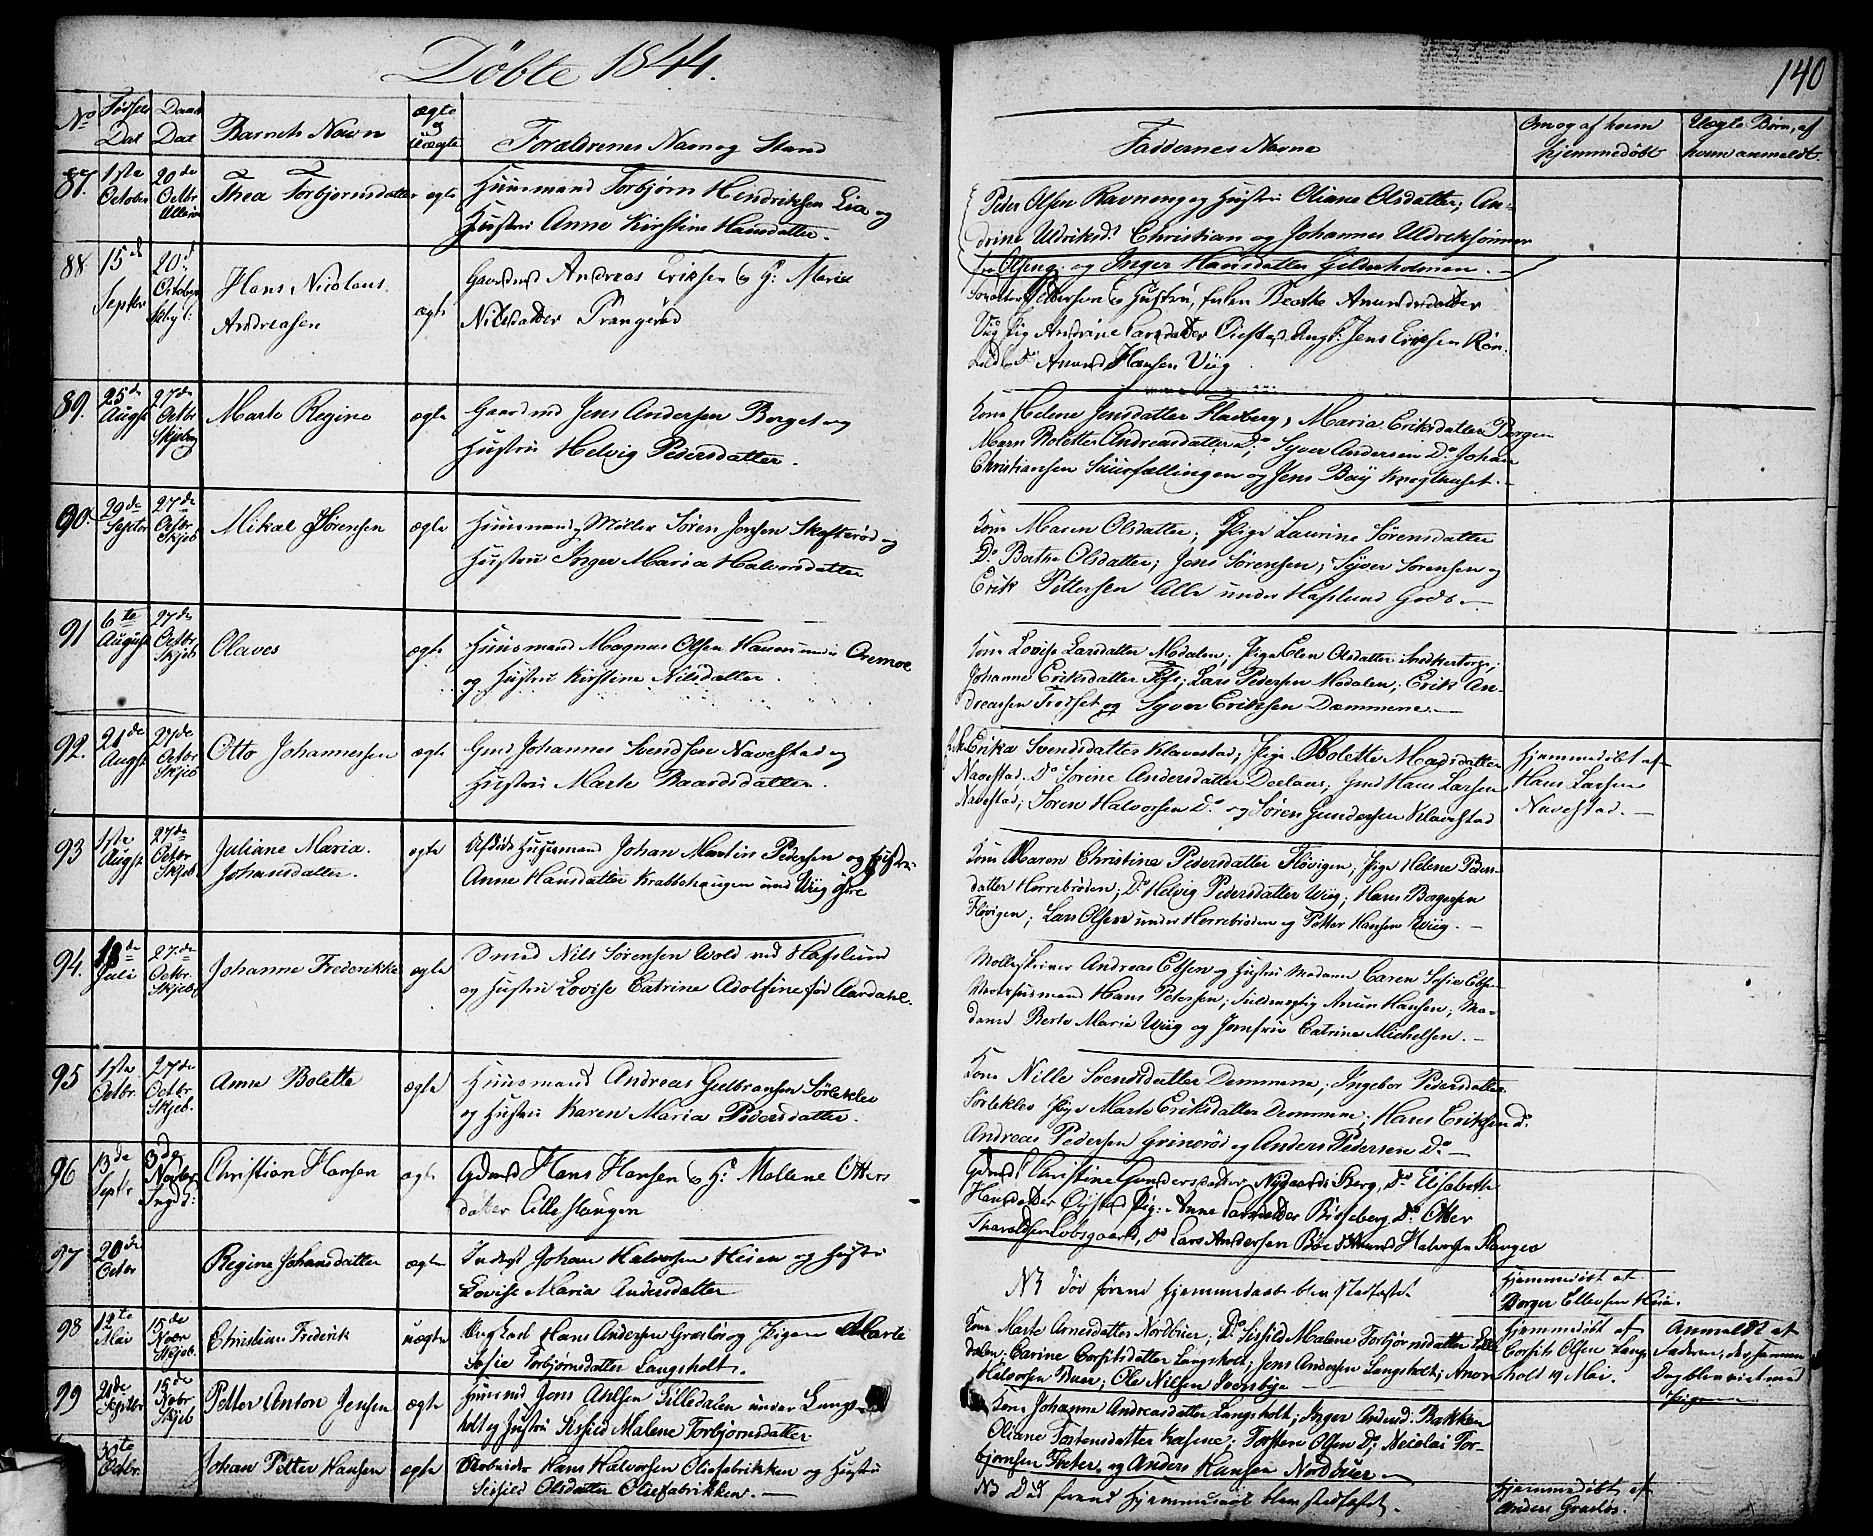 Döbte 1844.
140
No
Födsels Dat
Daabs Dat
Barnets Navn
ægte og uægte
Forældrenes Navn og Stand
Faddernes Navne
Om og af hvem hjemmedöbt
Uægte Börn, af hvem anmeldt.
87. 1ste October 20de Octbr Thea Torbjornsdatter ægte Huusmand Torbjørn Hendriksen Lia og
Hustru Anne Kirstine Hansdatter.
Peter Olsen Ravneng og Hustru Oliane Olsdatter; An-
drine Uldriksd. Christian og Johannes Uldriksönner
og Inger Hansdatter Gilderholmen.
88 15de Septbr 20de Octobr Hans Nicolaus Andreasen ægte Gaardmd Andreas Eriksen og H: Marie
Nilsdatter Prangeröd
Pedersen og Hustru, Beathe Amundsdatter
Viig Pig Andrine Larsdatter Jens Eriksen Rön-
Do Amund Hansen Viig
89. 25de Augst 27de Octbr Skjeberg Marte Regine ægte Gaardmd Jens Andersen Borget og
Hustru Helvig Pedersdatter.
Kone Helene Jensdatter Hauberg, Maria Eriksdatter Borgen
Maren Bolette Andreasdatter Do, Syver Andersen Do Johan
Christiansen og Jens Bay Kroghuset.
90. 29de Septbr 27de Octbr Skjeb Mikal Sörensen ægte Huusmand Møller Søren Jensen Skofteröd og
Hustru Inger Maria Halvorsdatter
Kone Maren Olsdatter; Pige Laurine Sørensdatter
Do Berthe Olsdatter; Jens Sørensen; Syver Sørensen og
Erik Pettersen Alle under Hafslund Gods.
91 6te August 27de Octbr Skjeb Olaves ægte Huusmand Magnus Olsen Haven under Oremoe
og Hustru Kirstine Nilsdatter.
Kone Lovise Larsdatter Modalen; Pige Elen Olsdatter
Johanne Eriksdatter Foss; Lars Pedersen Modalen; Erik An-
dreassen og Syver Eriksen Dammene.
92. 21de Augst 27de Octbr Skjeb Otto Johannessen ægte Gmd Johannes Svendsen Navestad og
Hustru Marte Baardsdatter.
Erika Svendsdatter Klavestad; Pige Bolette Madsdatter
Navestad. Do Sørine Andersdatter Gmd Hans Larsen
Navestad; Søren Halvorsen Do og Søren Gundersen Klavestad
Hjemmedöbt af
Hans Larsen
Navestad.
93 1ste Augst 27de Octbr Skjeb Juliane Maria
Johansdatter. ægte Huusmand Johan Martin Pedersen og Hustru
Anne Hansdatter Krabbehaugen und Viig Øvre
Kone Maren Christine Pedersdatter Flövigen, Pige Helene Peders-
datter Herrebröden; Do Helvig Pedersdatter Wiig; Hans Borgersen
Flövigen; Lars Olsen under Herrebröden og Petter Hansen Wiig.
94. 18de Juli 27de Octbr Skjeb Johanne Frederikke ægte Smed Nils Sørensen Wold ved Hafslund
og Hustru Lovise Catrine Adolfine för Aardahl.
Andreas Ebsen og Hustru Madame Caren Sofie Ebsen
Hans Petersen; Fuldmegtig Anun Hansen; Ma-
dame Berte Marie Wiig og Jomfrue Catrine Michelsen.
95 1ste Octbr. 27de Octbr. Skjeb. Anne Bolette ægte Huusmand Andreas Gulbransen Sörlekleo
og Hustru Karen Maria Pedersdatter.
Kone Nille Svendsdatter Dammene; Ingebor Pedersdatter
Sörlekleo Pige Marte Eriksdatter Dammene; Hans Eriksen Do
Andreas Pedersen Grineröd og Anders Pedersen Do
96 13de Septbr 3de Novbr Christian Hansen ægte Gdmd Hans Hansen og H: Mallene Otters
datter Lille Slangen
Gdmd Christine Gundersdatter Nygaard Berg, Do Elisabeth
Hansdatter Pig. Anne Larsdatter Bisseberg Do Otter
Tharaldsen Lobsgaard, Do Lars Andersen Halvorsen Slangen
97 20de Octbr Regine Johansdatter ægte Inderst Johan Halvorsen Heien og Hustru
Lovise Maria Andersdatter
NB död forend Hjemmedaab blev stadfæstet
Hjemmedöbt af
Borger Ellevsen Heia.
98 12te Mai 15de Novbr Skjeb. Christian Frederik uægte Ungkarl Hans Andersen Graslös og Pigen Marte
Sofie Torbjörnsdatter Langsholt.
Kone Marte Arnesdatter Nordbuer; Do Sissild Malene Torbjörnsdatter
dalen; Carine Corfitsdatter Langsholt; Jens Andersen Langsholt;
Halvorsen Buer; Ole Nilsen
Hjemmedöbt af
Corfits Olsen Langs-
holt 19 Mai.
Anmeldt af
Faderen, der samme
Dag blev viet med
Pigen
99 21de Septbr 15de Novbr Skjeb Petter Anton Jensen ægte Huusmd Jens Tilledalen under Langs-
holt og Hustru Sissild Malene Torbjörnsdatter
Kone Johanne Andreasdatter Langsholt; Inger Andersd. Bakken
Oliane Torstensdatter Kasene; Torsten Olsen Do; Nicolai Tor-
björnsen og Anders Hansen Nordbuer
30te Octbr. Johan Petter Hansen ægte Arbeider Hans Halvorsen Oliefabrikken og Hustru
Sissild Olsdatter Oliefabrikken.
NB Död forend Hjemmedaab blev stadfæstet.
Hjemmedöbt af
Anders Graslös.